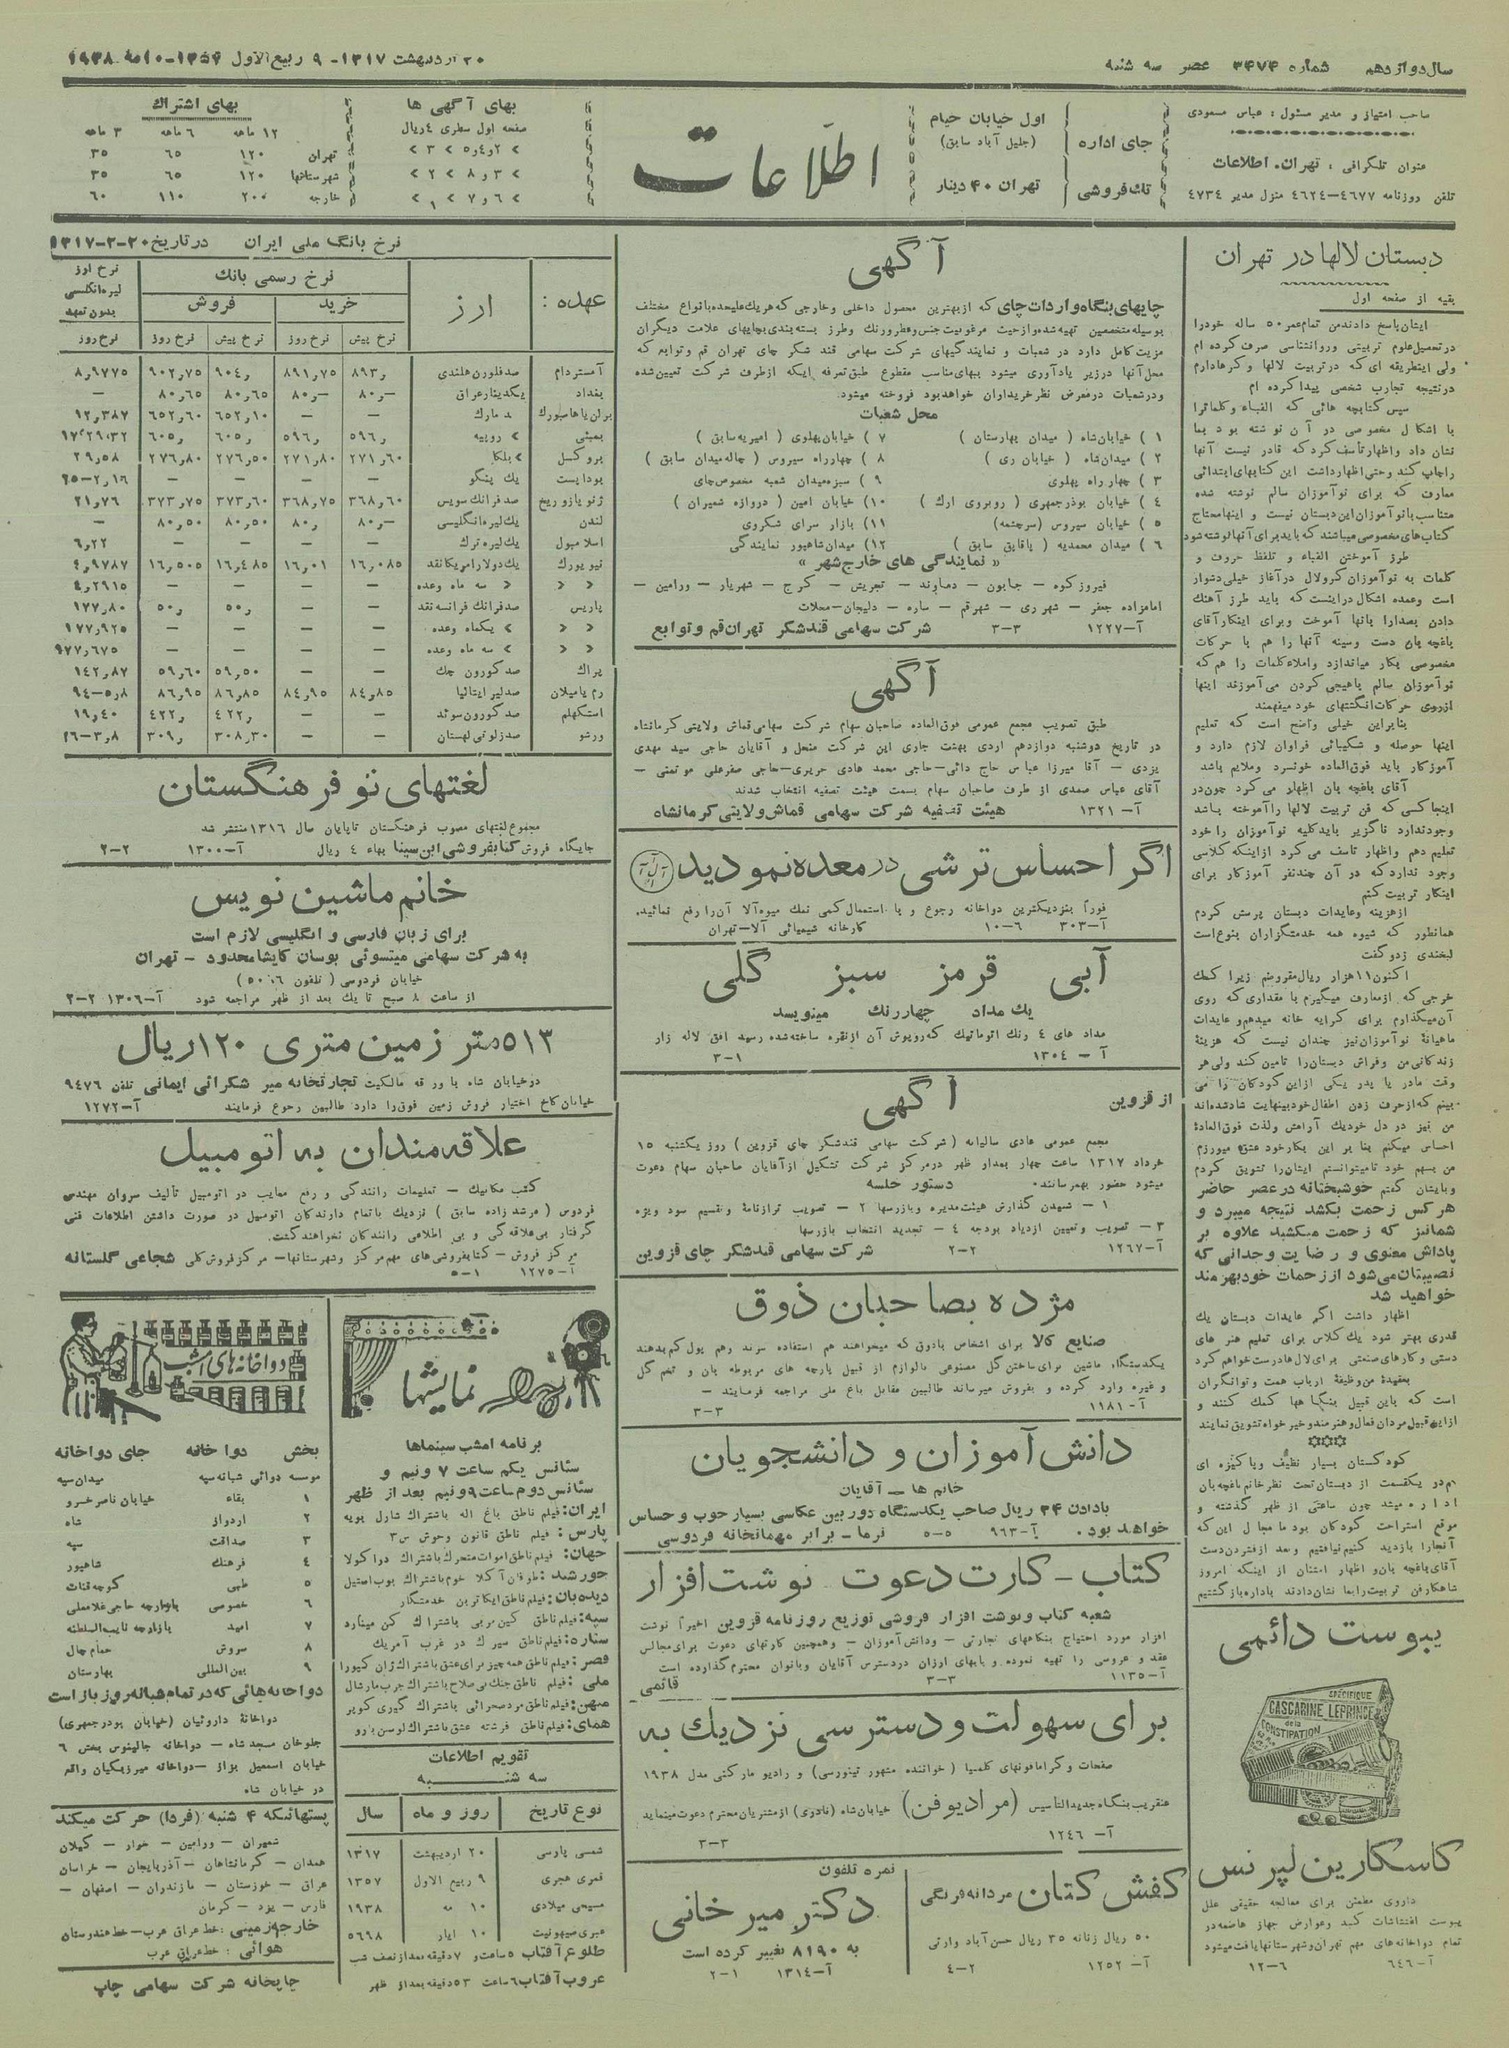 سال دوازدهم شماره ۳۴۷۴ عصر سه شنبه
۲۰ اردیبهشت ۱۳۱۷- ۹ ربیع الاول
صاحب امتیاز و مدیر مسئول : عباس مسعودی
عنوان تلگرافی : تهران. اطلاعات
تلفن روزنامه ۴۶۷۷-۴۶۲۴ منزل مدیر ۴۷۳۴
جای اداره
اول خیابان خیام
(جلیل آباد سابق)
تك فروشی
تهران ۴۰ دینار
اطلاعات
بهای آگهی ها
صفحه اول سطری ٤ ریال
بهای اشتراك
۱۲ ماهه ۶ ماهه ۳ ماهه
تهران ۱۲۰ ۶۵ ۳۵
شهرستانها ۱۲۰ ۶۵ ۳۵
خارجه ۲۰۰ ۱۱۰ ۶۰
دبستان لالها در تهران
بقیه از صفحه اول
ایشان پاسخ دادند من تمام عمر ۵۰ ساله خود را
در تحصیل علوم تربیتی و روانشناسی صرف کرده ام
ولی این طریقه ای که در تربیت لالها و کرها دارم
در نتیجه تجارب شخصی پیدا کرده ام
سپس کتابچه هائی که الفباء و کلمات را
با اشکال مخصوصی در آن نوشته بود بما
نشان داد و اظهار تأسف کرد که قادر نیست آنها
را چاپ کند و حتی اظهار داشت این کتابهای ابتدائی
معارف که برای نو آموزان سالم نوشته شده
متناسب با نو آموزان این دبستان نیست و اینها محتاج
کتاب های مخصوصی میباشند که باید برای آنها نوشته شود
طرز آموختن الفباء و تلفظ حروف و
کلمات به نو آموزان کر و لال در آغاز خیلی دشوار
است و عمده اشکال در اینست که باید طرز آهنك
دادن بصدا را بآنها آموخت و برای اینکار آقای
باغچه بان دست وسینه آنها را هم با حرکات
مخصوصی بکار میاندازد و املاء کلمات را هم که
نو آموزان سالم با هیجی کردن می آموزند اینها
از روی حرکات انگشتهای خود میفهمند
بنا براین خیلی واضح است که تعلیم
اینها حوصله و شکیبائی فراوان لازم دارد و
آموزگار باید فوق العاده خونسرد و ملایم باشد
آقای باغچه بان اظهار می کرد چون در
اینجا کسی که فن تربیت لالها را آموخته باشد
وجود ندارد ناگزیر باید کلیه نو آموزان را خود
تعلیم دهم و اظهار تاسف می کرد از اینکه کلاسی
وجود ندارد که در آن چند نفر آموزگار برای
اینکار تربیت کنم
از هزینه و عایدات دبستان پرسش کردم
همانطور که شیوه همه خدمتگزاران بنوع است
لبخندی زد و گفت
اکنون ۱۱ هزار ریال مقروضم زیرا کمك
خرجی که از معارف میگیرم با مقداری که روی
آن میگذارم برای کرایه خانه میدهم و عایدات
ماهیانهٔ نو آموزان نیز چندان نیست که هزینهٔ
زندگانی من و فراش دبستان را تامین کند ولی هر
وقت مادر یا پدر یکی از این کودکان را می
بینم که از حرف زدن اطفال خود بینهایت شاد شده اند
من نیز در دل خود یك آرامش و لذت فوق العادهٔ
احساس میکنم بنا بر این بکار خود عشق میورزم
من بسهم خود تا میتوانستم ایشان را تشویق کردم
و بایشان گفتم خوشبختانه در عصر حاضر
هر کس زحمت بکشد نتیجه میبرد و
شما نیز که زحمت میکشید علاوه بر
پاداش معنوی و رضایت وجدانی که
نصیبتان می شود از زحمات خود بهرمند
خواهید شد
اظهار داشت اگر عایدات دبستان یك
قدری بهتر شود یك کلاس برای تعلیم هنر های
دستی و کارهای صنعتی برای لال ها درست خواهم کرد
بعقیدهٔ من وظیفهٔ ارباب همت و توانگران
است که باین قبیل بنگاه ها کمك کنند و
از این قبیل مردان فعال و هنرمند و خیر خواه تشویق نمایند
کودکستان بسیار نظیف و پاکیزه ای
هم در یکقسمت از دبستان تحت نظر خانم باغچه بان
اداره میشد چون ساعتی از ظهر گذشته و
موقع استراحت کودکان بود ما مجال این که
آنجا را بازدید کنیم نیافتیم و بعد از فشردن دست
آقای باغچه بان و اظهار امتنان از اینکه امروز
شاهکار فن تربیت را بما نشان دادند باداره بازگشتیم
یبوست دائمی
SPÉCIFIQUE
CASCARINE LEPRINCE
de la
CONSTIPATION
کاسکارین لپرنس
داروی مطمئن برای معالجه حقیقی علل
یبوست اغتشاشات کبد و عوارض جهاز هاضمه در
تمام دواخانه های مهم تهران و شهرستانها یافت میشود
آ- ۶۴۶ ۶-۱۲
آگهی
چایهای بنگاه واردات چای که از بهترین محصول داخلی و خارجی که هر یك علیحده با نواع مختلف
بوسیله متخصصین تهیه شده و از حیث مرغوبیت جنس و عطر و رنك و طرز بسته بندی بچایهای علامت دیگران
مزیت کامل دارد در شعبات و نمایندگیهای شرکت سهامی قند شکر چای تهران قم و توابع که
محل آنها در زیر یادآوری میشود ببهای مناسب مقطوع طبق تعرفه ایکه از طرف شرکت تعیین شده
و در شعبات در معرض نظر خریداران خواهد بود فروخته میشود.
محل شعبات
۱ ) خیابان شاه ( میدان بهارستان ) ۷ ) خیابان پهلوی ( امیریه سابق )
۲ ) میدان شاه ( خیابان ری ) ۸ ) چهار راه سیروس ( چاله میدان سابق )
۳ ) چهار راه پهلوی ۹ ) سبزه میدان شعبه مخصوص چای
۴ ) خیابان بوذرجمهری ( روبروی ارك ) ۱۰) خیابان امین ( دروازه شمیران )
۵ ) خیابان سیروس (سرچشمه) ۱۱) بازار سرای شکروی
۶ ) میدان محمدیه ( پاقاپق سابق ) ۱۲) میدان شاهپور نمایندگی
« نمایندگی های خارج شهر »
فیروز کوه – جابون – دماوند – تجریش – کرج – شهریار – ورامین –
امامزاده جعفر – شهر ری – شهر قم – ساوه – دلیجان – محلات
آ-۱۲۲۷ ۳-۳ شرکت سهامی قند شکر تهران قم و توابع
آگهی
طبق تصویب مجمع عمومی فوق العاده صاحبان سهام شرکت سهامی قماش ولایتی کرمانشاه
در تاریخ دوشنبه دوازدهم اردی بهشت جاری این شرکت منحل و آقایان حاجی سید مهدی
یزدی – آقا میرزا عباس حاج دائی – حاجی محمد هادی حریری – حاجی صفر علی مو تمنی –
آقای عباس صمدی از طرف صاحبان سهام بسمت هیئت تصفیه انتخاب شدند
آ- ۱۳۲۱ هیئت تصفیه شرکت سهامی قماش ولایتی کرمانشاه
اگر احساس ترشی در معده نمودید
فوراً بنزدیکترین دواخانه رجوع و با استعمال کمی نمك میوه آلا آن را رفع نمائید.
آ-۳۰۳ ۶-۱۰ کارخانه شیمیائی آلا–تهران
آبی قرمز سبز گلی
یك مداد چهار رنك مینویسد
مداد های ٤ رنك اتوماتیك که روپوش آن از نقره ساخته شده رسید افق لاله زار
آ – ۱۳۰٤ ۱-۳
از قزوین
آگهی
مجمع عمومی عادی سالیانه ( شرکت سهامی قند شکر چای قزوین ) روز یکشنبه ۱۵
خرداد ۱۳۱۷ ساعت چهار بعد از ظهر در مرکز شرکت تشکیل از آقایان صاحبان سهام دعوت
میشود حضور بهمرسانند. دستور جلسه
۱ – شنیدن گذارش هیئت مدیره و بازرسها ۲ – تصویب ترازنامهٔ و تقسیم سود ویژه
۳ – تصویب و تعیین ازدیاد بودجه ٤ – تجدید انتخاب بازرسها
آ-۱۲۶۷ ۲-۲ شرکت سهامی قند شکر چای قزوین
مژده بصاحبان ذوق
صنایع کالا برای اشخاص با ذوق که میخواهند هم استفاده سرند و هم پول کم بدهند
یکدستگاه ماشین برای ساختن گل مصنوعی با لوازم از قبیل پارچه های مربوطه بآن و تخم گل
و غیره وارد کرده و بفروش میرساند طالبین مقابل باغ ملی مراجعه فرمایند –
آ-۱۱۸۱ ۳-۳
دانش آموزان و دانشجویان
خانم ها – آقایان
با دادن ۳۴ ریال صاحب یکدستگاه دوربین عکاسی بسیار خوب و حساس
خواهید بود. آ-۹۶۳ ۵-۵ فرما – برابر مهمانخانه فردوسی
کتاب – کارت دعوت نوشت افزار
شعبه کتاب و نوشت افزار فروشی توزیع روزنامه قزوین اخیراً نوشت
افزار مورد احتیاج بنگاههای تجارتی – و دانش آموزان – و همچنین کارتهای دعوت برای مجالس
عقد و عروسی را تهیه نموده و با بهای ارزان در دسترس آقایان و بانوان محترم گذارده است
آ-۱۱۳۵ ۳-۳ قائمی
برای سهولت و دسترسی نزدیك به
صفحات و گرامافونهای کلمبیا ( خواننده مشهور تینورسی ) و رادیو مارکنی مدل ۱۹۳۸
عنقریب بنگاه جدید التاسیس (مرادیوفن) خیابان شاه (نادری) از مشتریان محترم دعوت مینماید
آ- ۱۲۴۶ ۳-۳
کفش کتان مردانه فرنگی
۵۰ ریال زنانه ۳۵ ریال حسن آباد وارثی
آ- ۱۲۵۲ ۲-۴
نمره تلفون
دکتر میر خانی
به ۸۱۹۰ تغییر کرده است
آ-۱۳۱۴ ۱-۲
نرخ بانگ ملی ایران در تاریخ ۲۰-۲-۱۳۱۷
عهده : ارز نرخ رسمی بانك نرخ ارز
خرید فروش لیره انگلیسی بدون تعهد
نرخ پیش نرخ روز نرخ پیش نرخ روز نرخ روز
آمستردام صد فلورن هلندی ۸۹۳٫ ۸۹۱٫۷۵ ۹۰۴٫ ۹۰۲٫۷۵ ۸٫۹۷۷۵
بغداد یکدینار عراق –٫۸۰ –٫۸۰ ۸۰٫۶۵ ۸۰٫۶۵ –
برلن یا هامبورك صد مارك – – ۶۵۲٫۱۰ ۶۵۲٫۶۰ ۱۲٫۳۸۷
بمبئی » روپیه ۵۹۶٫ ۵۹۶٫ ۶۰۵٫ ۶۰۵٫
بروکسل » بلگا ۲۷۱٫۶۰ ۲۷۱٫۸۰ ۲۷۶٫۵۰ ۲۷۶٫۸۰ ۲۹٫۵۸
بوداپست یك پنگو – – – –
ژنو یا زوریخ صد فرانك سویس ۳۶۸٫۶۰ ۳۶۸٫۷۵ ۳۷۳٫۶۰ ۳۷۳٫۷۵ ۲۱٫۷۶
لندن یك لیره انگلیسی –٫۸۰ ۸۰٫ ۸۰٫۵۰ ۸۰٫۵۰ –
اسلامبول یك لیره ترك – – – – ۶٫۲۲
نیویورك یك دولار امریکا نقد ۱۶٫۰۸۵ ۱۶٫۰۱ ۱۶٫۴۸۵ ۱۶٫۵۰۵ ۴٫۹۷۸۷
» » » سه ماه وعده – – – – ۴٫۲۹۱۵
پاریس صد فرانك فرانسه نقد – – ۵۰٫ ۵۰٫ ۱۷۷٫۸۰
» » » یکماه وعده – – – – ۱۷۷٫۹۲۵
» » » سه ماه وعده – – – –
پراك صد کورون چك – – ۵۹٫۵۰ ۵۹٫۶۰ ۱۴۲٫۸۷
رم یا میلان صد لیر ایتالیا ۸۴٫۸۵ ۸۴٫۹۵ ۸۶٫۸۵ ۸۶٫۹۵
استکهلم صد کورون سوئد – – ۴۲۲٫ ۴۲۲٫ ۱۹٫۴۰
ورشو صد زلوتی لهستان – – ۳۰۸٫۳۰ ۳۰۹٫
لغتهای نو فرهنگستان
مجموع لغتهای مصوب فرهنگستان تا پایان سال ۱۳۱۶ منتشر شد
جایگاه فروش کتابفروشی ابن سینا بهاء ٤ ریال آ-۱۳۰۰ ۲-۲
خانم ماشین نویس
برای زبان فارسی و انگلیسی لازم است
به شرکت سهامی میتسوئی بوسان کایشا محدود – تهران
خیابان فردوسی ( تلفون ۵۰۰۶ )
از ساعت ۸ صبح تا یك بعد از ظهر مراجعه شود آ-۱۳۰۶ ۲-۲
۵۱۳ متر زمین متری ۱۲۰ ریال
در خیابان شاه با ورقه مالکیت تجارتخانه میر شکرائی ایمانی تلفن ۹۴۷۶
خیابان کاخ اختیار فروش زمین فوق را دارد طالبین رجوع فرمایند آ-۱۲۷۲
علاقه مندان به اتومبیل
کتب مکانیك – تعلیمات رانندگی و رفع معایب در اتومبیل تألیف سروان مهندس
فردوس ( مرشد زاده سابق ) نزدیك با تمام دارندگان اتومبیل در صورت داشتن اطلاعات فنی
گرفتار بی علاقه گی و بی اطلاعی رانندگان نخواهند گشت.
مرکز فروش – کتابفروشی های مهم مرکز و شهرستانها – مرکز فروش کلی شجاعی گلستانه
آ-۱۲۷۵ ۱-۵
نمایشها
برنامه امشب سینماها
سئانس یکم ساعت ۷ ونیم و
سئانس دوم ساعت ۹ ونیم بعد از ظهر
ایران: فیلم ناطق باغ اله باشتراك شارل بویه
پارس : فیلم ناطق قانون وحوش س۳
جهان: فیلم ناطق اموات متحرك باشتراك دراکولا
خورشید: طوفان آکلاهوما باشتراك بوب استیل
دیده بان: فیلم ناطق ایکاترین خدمتگار
سپه: فیلم ناطق کین مربی باشتراك کن مینارد
ستاره: فیلم ناطق سیرك در غرب آمریك
قصر: فیلم ناطق همه چیز برای عشق باشتراك ژان کیپورا
ملی: فیلم ناطق جنك بی صلاح باشتراك جرب مارشال
میهن: فیلم ناطق مرد صحرائی باشتراك گری کوپر
همای: فیلم ناطق فرشته عشق باشتراك لوسن بارو
تقویم اطلاعات
سه شنبه
نوع تاریخ روز و ماه سال
شمسی پارسی ۲۰ اردیبهشت ۱۳۱۷
قمری هجری ۹ ربیع الاول ۱۳۵۷
مسیحی میلادی ۱۰ مه ۱۹۳۸
عبری صیهونیت ۱۰ ایار ۵۶۹۸
طلوع آفتاب ۵ ساعت و ۷ دقیقه بعد از نصف شب
غروب آفتاب ۶ ساعت ۵۳ دقیقه بعد از ظهر
دواخانه های امشب
بخش دوا خانه جای دواخانه
موسسه دوائی شبانه سپه میدان سپه
۱ بقاء خیابان ناصر خسرو
۲ اردواز شاه
۳ صداقت سپه
٤ فرهنك شاهپور
۵ طبی کوچه قنات
۶ خصوصی بازارچه حاجی غلامعلی
۷ امید بازارچه نایب السلطنه
۸ سروش حمام چال
۹ بین المللی بهارستان
دواخانه هائی که در تمام شبانه روز باز است
دواخانهٔ داروئیان (خیابان بوذرجمهری)
جلوخان مسجد شاه – دواخانه جالینوس بخش ۶
خیابان اسمعیل بزاز – دواخانه میرزیکیان واقع
در خیابان شاه
پستهائیکه ۴ شنبه (فردا) حرکت میکند
شمیران – ورامین – خوار – گیلان
همدان – کرمانشاهان – آذربایجان – خراسان
عراق – خوزستان – مازندران – اصفهان –
فارس – یزد – کرمان
خارجه زمینی: خط عراق عرب – خط هندوستان
هوائی : خط عراق عرب
چاپخانه شرکت سهامی چاپ